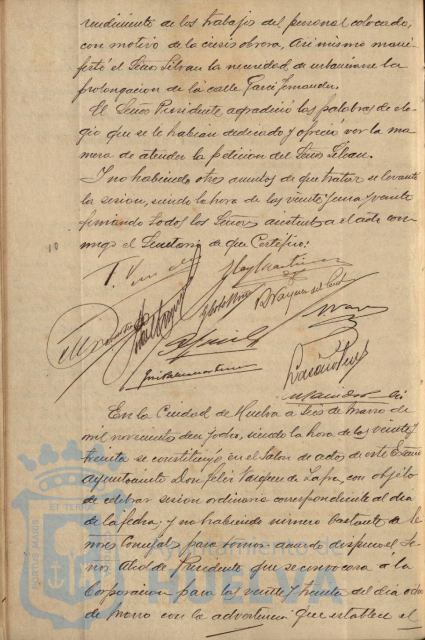 rendimiento de los trabajos del personal colocado,
con motivo de la crisis obrera. Asi mismo mani-
festó el Señor Silvan la necesidad de urbanizar la
prolongación de la calle Garci Fernandez.
El Señor Presidente agradeció las palabras de elo-
gio que se le habian dedicado y ofreció ver la ma-
nera de atender la petición del Señor Silvan.
Y no habiendo otros asuntos de que tratar se levantó
la sesion, siendo la hora de las veinte y una y veinte
firmando todos los Señores asistentes a el acto con-
migo el Secretario de que Certifico:
10
En la Ciudad de Huelva a Seis de Marzo de
mil novecientos, siendo la hora de las veinte y
treinta se constituyó, en el Salon de actos de este Excmo
Ayuntamiento Don Felix Vazquez de Zafra, con objeto
de celebrar sesion ordinaria correspondiente al dia
de la fecha; y no habiendo número bastante de Se-
ñores Concejales para tomar acuerdo dispuso el Se-
ñor Alcalde Presidente que se convocara á la
Corporacion para las veinte y treinta del dia ocho
de Marzo con la advertencia que establece el
ET TERRA
PORTUS MARIS
Ayuntamiento de
HUELVA